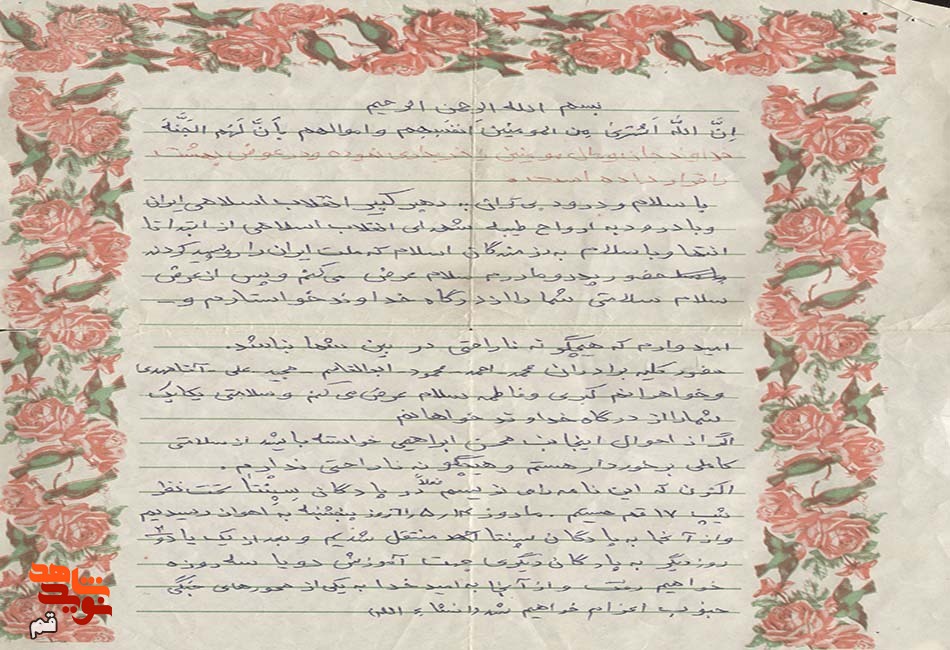 بسم الله الرحمن الرحیم
اِنَّ اللهَ اَشتریٰ مِن المومنینَ اَنفسهم و اموالهم بِاَنَّ لَهُم الجَنَّهَ
خداوند جان و مال مومنین را خریداری نموده و در عوض بهشت
را قرار داده است
با سلام و درود بی کران .. رهبر کبیر انقلاب اسلامی ایران
و با درود به ارواح طیبه شهدای انقلاب اسلامی از ابتدا تا
انتها و با سلام به رزمندگان اسلام که ملت ایران را روسپید کردند
حضور پدر و مادرم سلام عرض می کنم و پس از عرض
سلام سلامتی شما را از درگاه خداوند خواستارم و
امیدوارم که هیچگونه ناراحتی در بین شما نباشد.
حضور کلیه برادران محمد احمد محمود ابوالقاسم مجید علی آقامهدی
و خواهرانم کبری و فاطمه سلام عرض می کنم و سلامتی یکایک
شما را از درگاه خداوند خواهانم
اگر از احوال اینجانب محسن ابراهیمی خواسته باشید از سلامتی
کاملی برخوردار هستم و هیچگونه ناراحتی ندارم.
اکنون که این نامه را می نویسم فعلاً در پادگانی سپنتا تحت نظر
تیپ ۱۷ قم هستیم. ما روز پنجشنبه به اهواز رسیدیم
و از آنجا به پادگان سپنتا منتقل شدیم و بعد از یک یا دو
روز دیگر به پادگان دیگری جهت آموزش دو یا سه روزه
خواهیم رفت و از آنجا به امید خدا به یکی از محورهای جنگی
جنوب اعزام خواهیم شد (انشاء الله)
نوید شاهد
قم